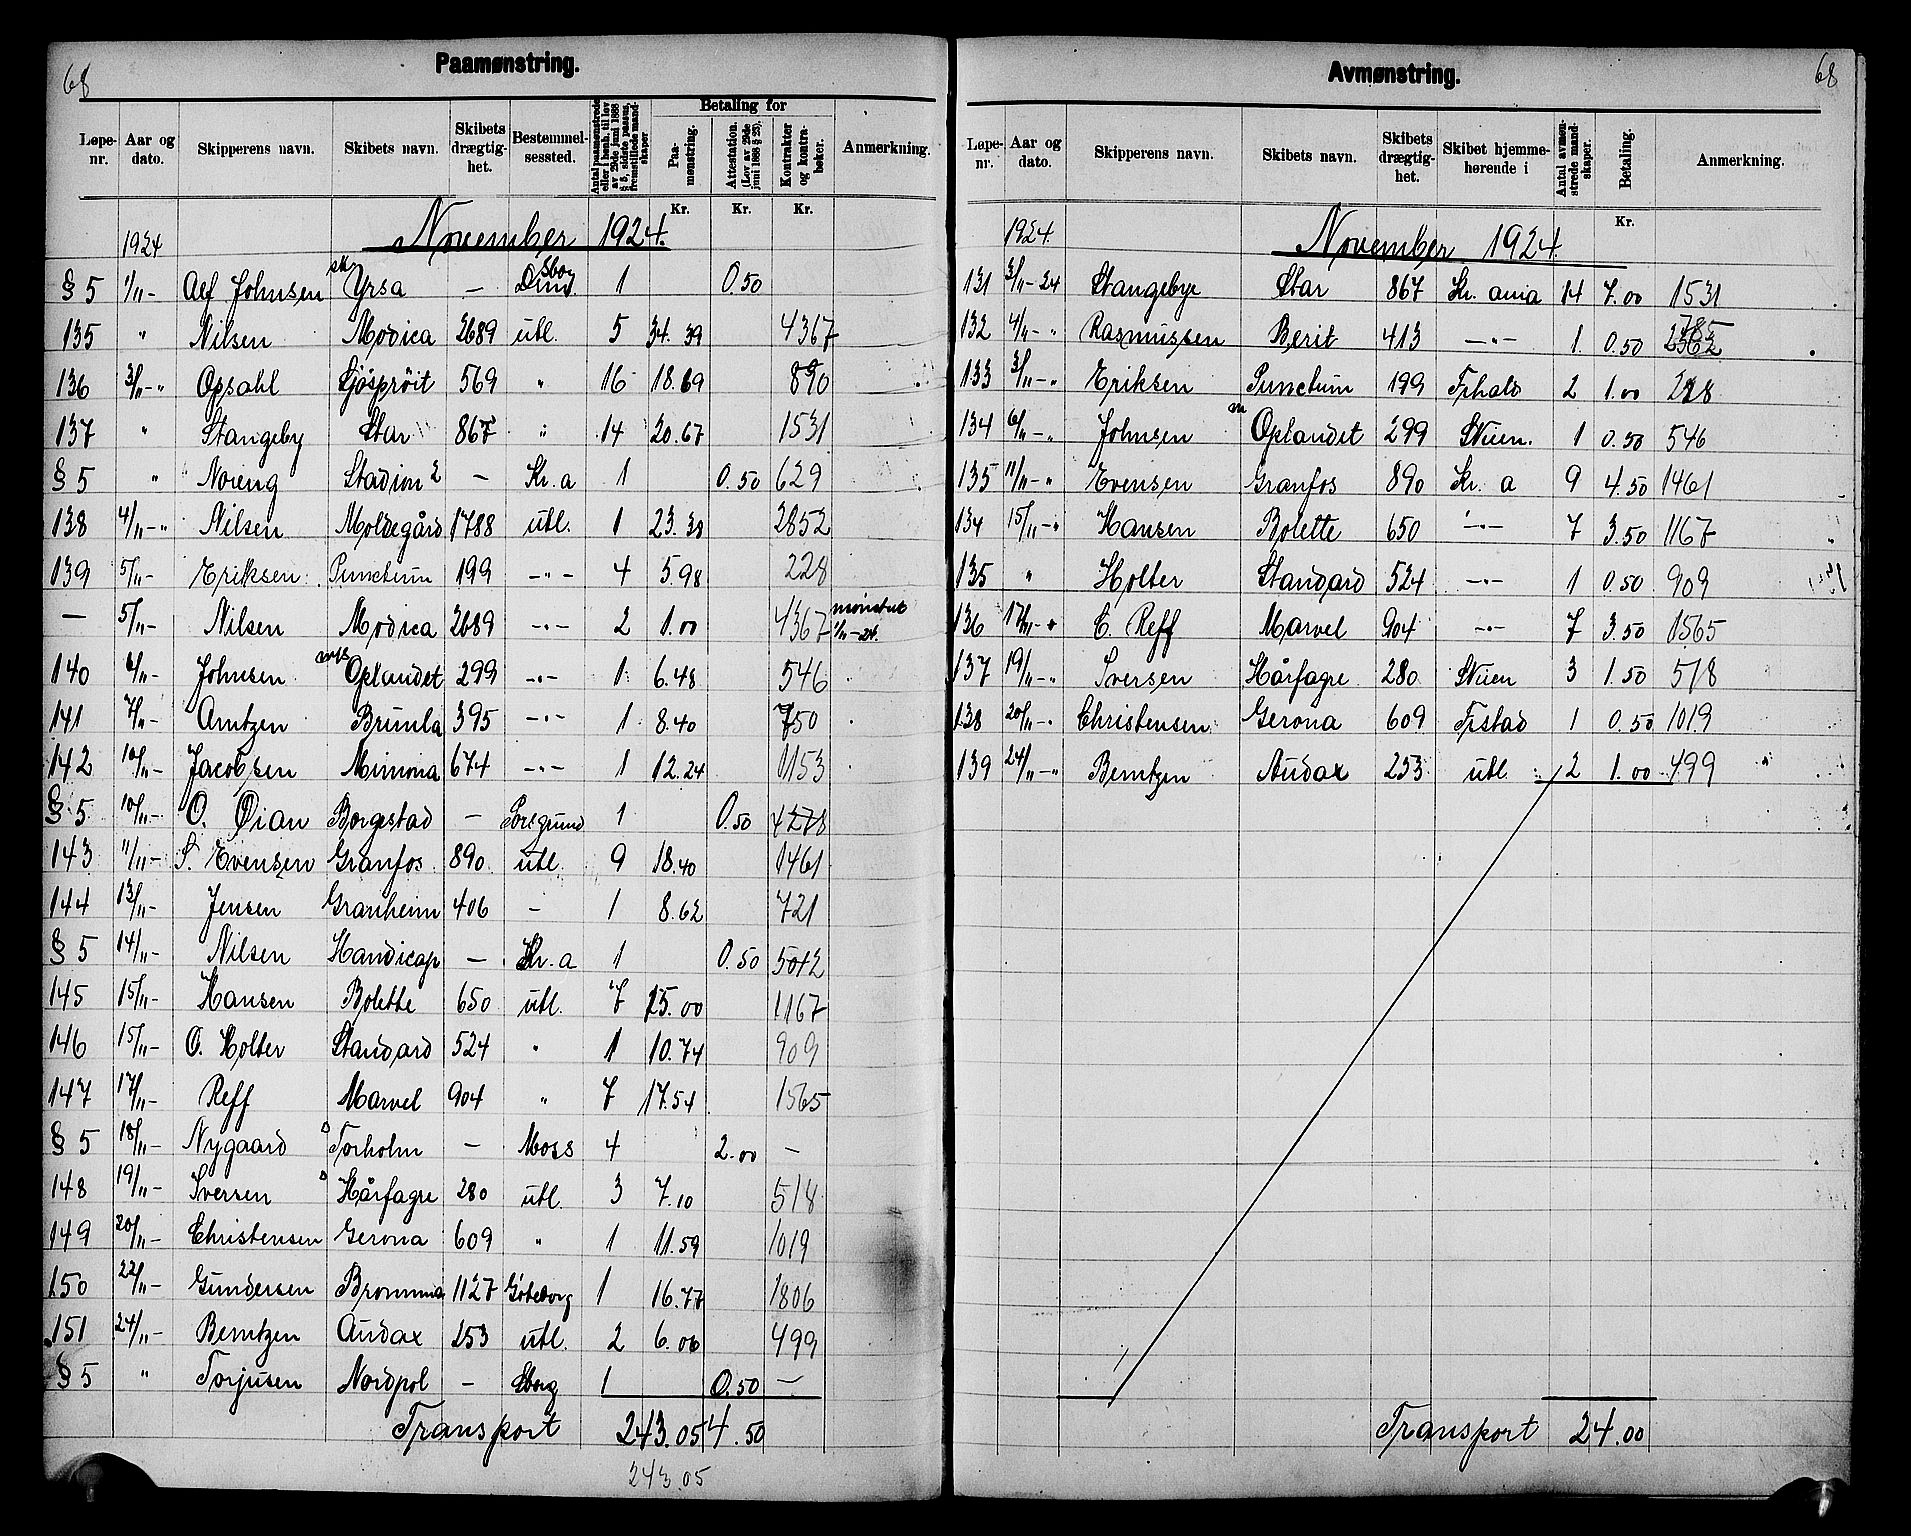 68
Paamønstring.
Løpe-nr. Aar og dato. Skipperens navn. Skibets navn. Skibets drægtig-het. Bestemmel-sessted. Antal paamønstrede eller i henh. til lov av 29de juni 1888 § 5, sidste passus, fremstillede mand-skaper Betaling for Paa-mønstring. Attestation. (Lov av 29de juni 1888 § 25). Kontrakter og kontra-bøker. Anmerkning.
Kr. Kr. Kr.
1924 November 1924.
§ 5 1/11 - Alf Johnsen Yrsa — 1 0.50
135 " Nilsen Modica 2689 utl. 5 34.39 4367
136 3/11 - " Opsahl Göspröit 569 " 16 18.69 890
137 " Stangeby Star 867 " 14 20.67 1531
§ 5 " Noreng Stadion 2 — Kr.a 1 0.50 629
138 4/11 - " Nilsen Moldegård 1788 utl. 1 23.38 2852
139 5/11 - Eriksen Punctum 199 -"- 4 5.98 228
— 5/11 - Nilsen Modica 2689 -"- 2 1.00 4367 mønstret 1/11-24.
140 6/11 - Johnsen m/s Oplandet 299 -"- 1 6.48 546
141 7/11 - Arntzen Brumla 395 -"- 1 8.40 750
142 10/11 - Jacobsen Mimona 674 -"- 1 12.24 1153
§ 5 10/11 - O. Øian Borgestad — Porsgrund 1 0.50 4278
143 11/11 - S. Evensen Granfos 890 utl. 9 18.40 1461
144 13/11 - Jensen Granheim 406 - 1 8.62 721
§ 5 14/11 - Nilsen Handicap — Kr.a 1 0.50 5012
145 15/11 - Hansen Bolette 650 utl. 7 15.00 1167
146 15/11 - O. Holter Standard 524 " 1 10.74 909
147 17/11 - Reff Marvel 904 " 7 17.54 1565
§ 5 18/11 - Nygaard D Torholm — Moss 4 2.00 —
148 19/11 - Iversen D Hårfagre 280 utl. 3 7.10 518
149 20/11 - Christensen Gerona 609 " 1 11.59 1019
150 22/11 - Gundersen Bromma 1127 Göteborg 1 16.77 1806
151 24/11 - Berntzen Audax 253 utl. 2 6.06 499
§ 5 " Torjusen Nordpol — Sborg 1 0.50 —
Transport 243.05 4.50
243.05
68
Avmønstring.
Løpe-nr. Aar og dato. Skipperens navn. Skibets navn. Skibets drægtig-het. Skibet hjemme-hørende i Antal avmøn-strede mand-skaper. Betaling. Anmerkning.
Kr.
1924 November 1924.
131 3/11 - 24 Stangebye Star 867 Kr. ania 14 7.00 1531
132 4/11 - " Rasmussen Berit 413 —"— 1. 0.50 785
133 3/11 - " Eriksen Punctum 199 Fhald 2 1.00 228
134 6/11 - " Johnsen m Oplandet 299 Skien. 1 0.50 546
135 11/11 - " Evensen Granfos 890 Kr. a 9 4.50 1461
134 15/11 - " Hansen Bolette 650 -"- 7 3.50 1167
135 " Holter Standard 524 -"- 1 0.50 909
136 17/11 - " C. Reff Marvel 904 -"- 7 3.50 1565
137 19/11 - " Iversen Hårfagre 280 Skien 3 1.50 518
138 20/11 - " Christensen Gerona 609 Frstad 1 0.50 1019
139 24/11 - " Berntzen Audax 253 utl 2 1.00 499
Transport 24.00